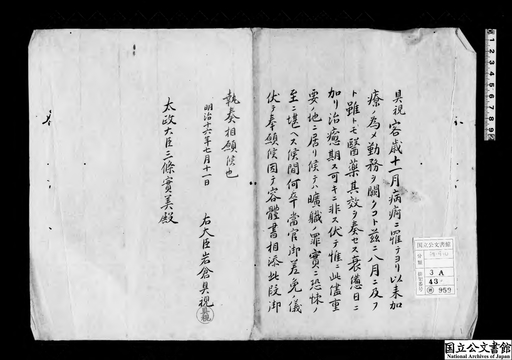 具視客歳十一月病痾ニ罹テヨリ以来加
療ノ為メ勤務ヲ闕クコト茲ニ八月ニ及フ
ト雖トモ醫藥其效ヲ奏セス衰憊日ニ
加リ治癒期ス可キニ非ス伏テ惟ニ此儘重
要ノ地ニ居リ候テハ曠職ノ罪實ニ恐悚ノ
至ニ堪ヘス候間何卒當官御差免儀
伏テ奉願候因テ容體書相添此段御
執奏相願候也
明治十六年七月十一日
右大臣岩倉具視
太政大臣三條實美殿
国立公文書館
分類
3 A
43
959
国立公文書館
National Archives of Japan